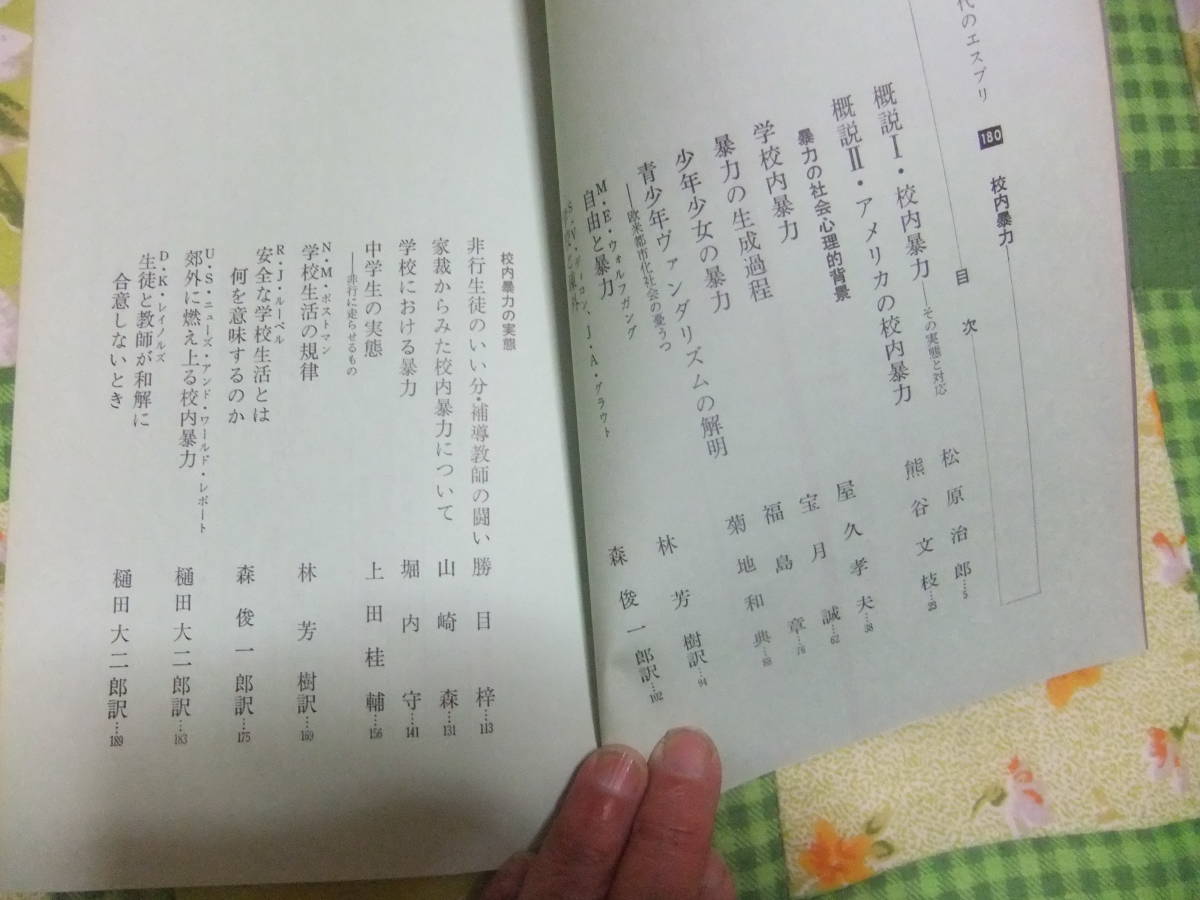 代のエスプリ 180 校内暴力
目次
概説Ⅰ・校内暴力――その実態と対応 松原治郎…5
概説Ⅱ・アメリカの校内暴力 熊谷文枝…23
暴力の社会心理的背景
学校内暴力 屋久孝夫…38
暴力の生成過程 宝月誠…62
少年少女の暴力 福島章…76
青少年ヴァンダリズムの解明 菊地和典…88
――欧米都市化社会の憂うつ
M・E・ウォルフガング
自由と暴力 林芳樹訳…94
S・V・ディーコン、J・A・グラウト
森俊一郎訳…102
校内暴力の実態
非行生徒のいい分・補導教師の闘い 勝目梓…113
家裁からみた校内暴力について 山崎森…131
学校における暴力 堀内守…141
中学生の実態 上田桂輔…156
――非行に走らせるもの
N・M・ボストマン
学校生活の規律 林芳樹訳…169
R・J・ルーベル
安全な学校生活とは
何を意味するのか 森俊一郎訳…175
U・S・ニューズ・アンド・ワールド・レポート
郊外に燃え上る校内暴力 樋田大二郎訳…183
D・K・レイノルズ
生徒と教師が和解に
合意しないとき 樋田大二郎訳…189